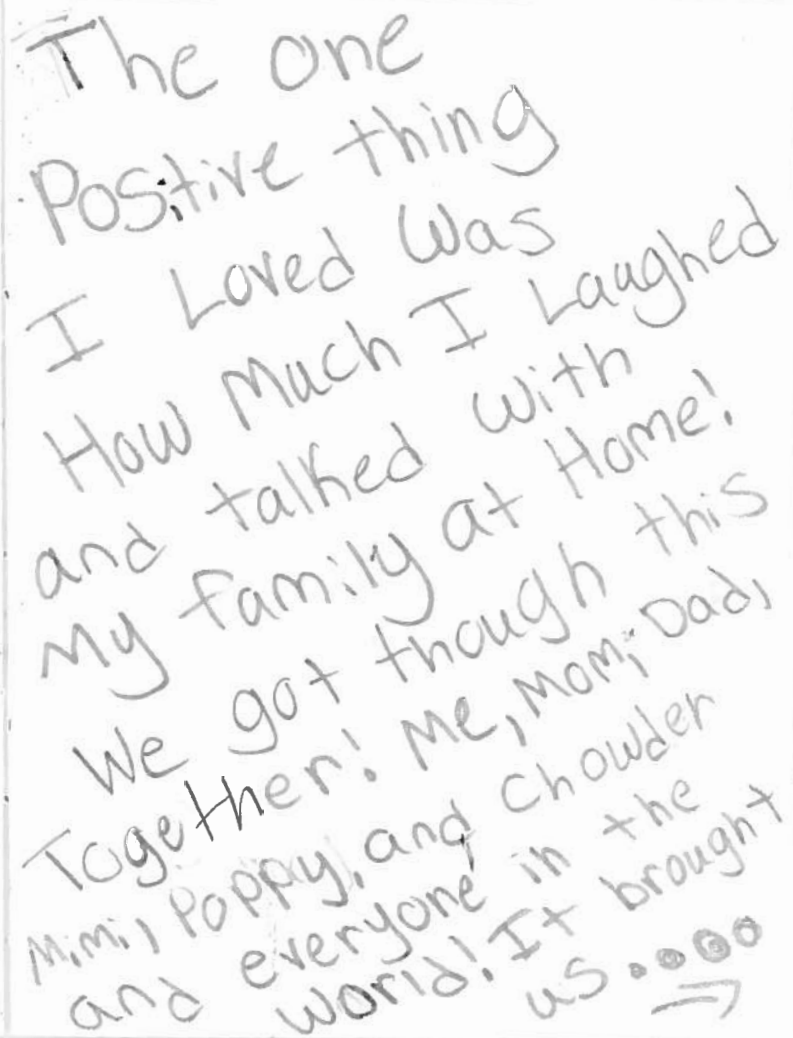 The one
Positive thing
I Loved Was
How Much I Laughed
and talked with
My family at Home!
We got though this
Together! Me, Mom, Dad,
Mimi, Poppy, and Chowder
and everyone in the
world! It brought
us....